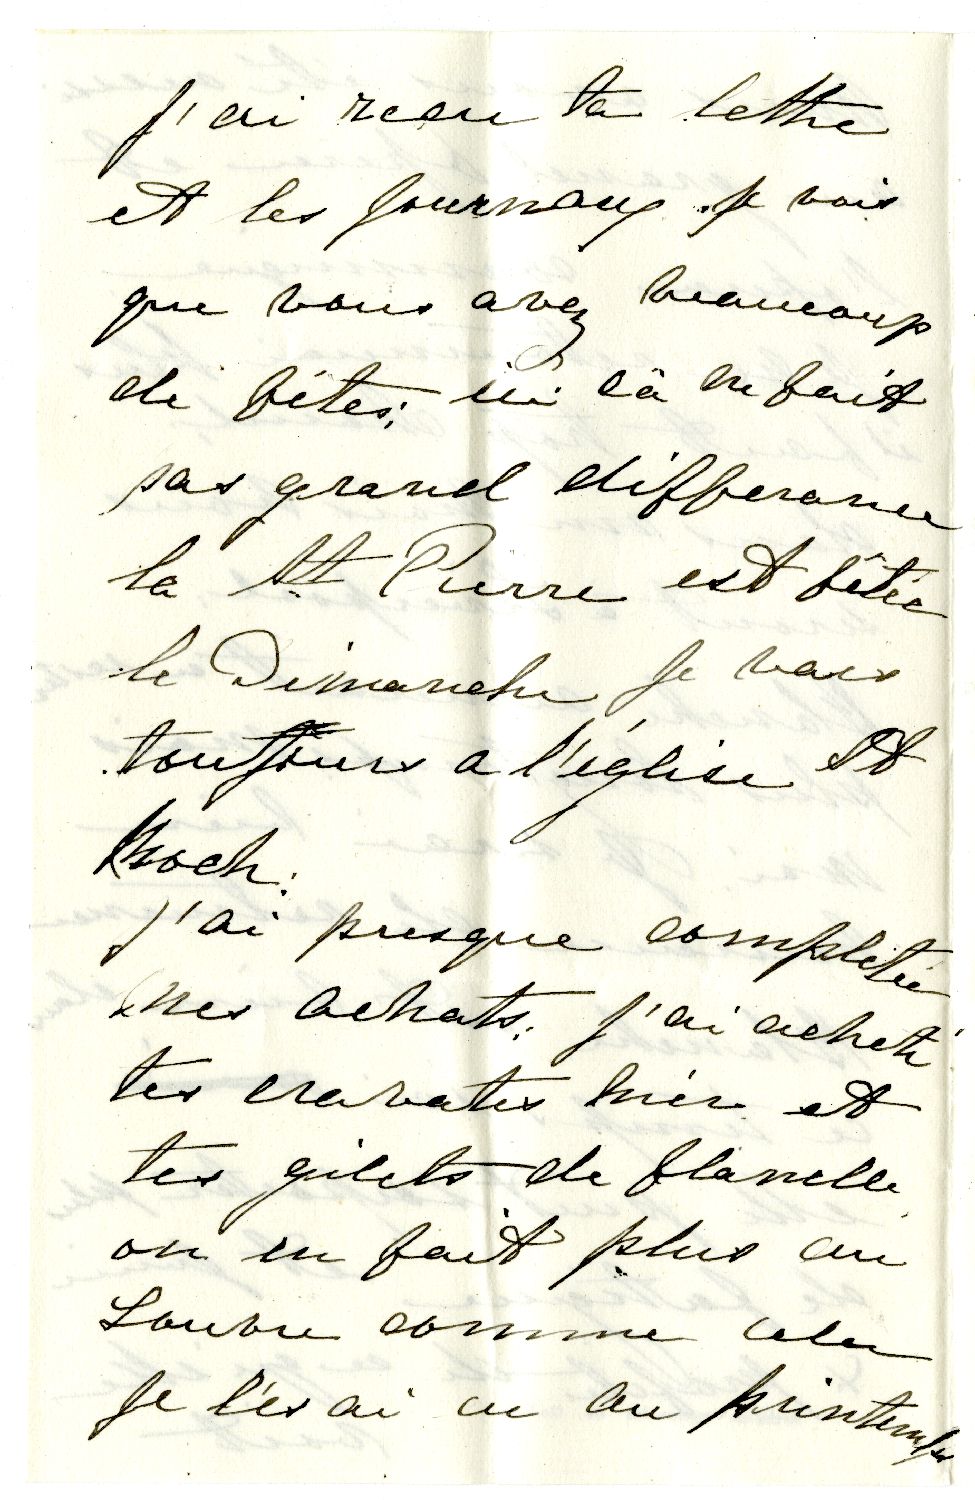 J'ai recu ta lettre
et les journaux. Je vois
que vous avez beaucoup
de fêtes; ici cà ne fait
pas grand differance
la St Pierre est fêtée
le Dimanche je vais
toujours a l'église St
Roch.
J'ai presque complétée
mes achats. J'ai acheté
tes cravates hièr et
tes gilets de flanelle
on en fait plus au
Louvre comme cela
Je les ai eu au printemps